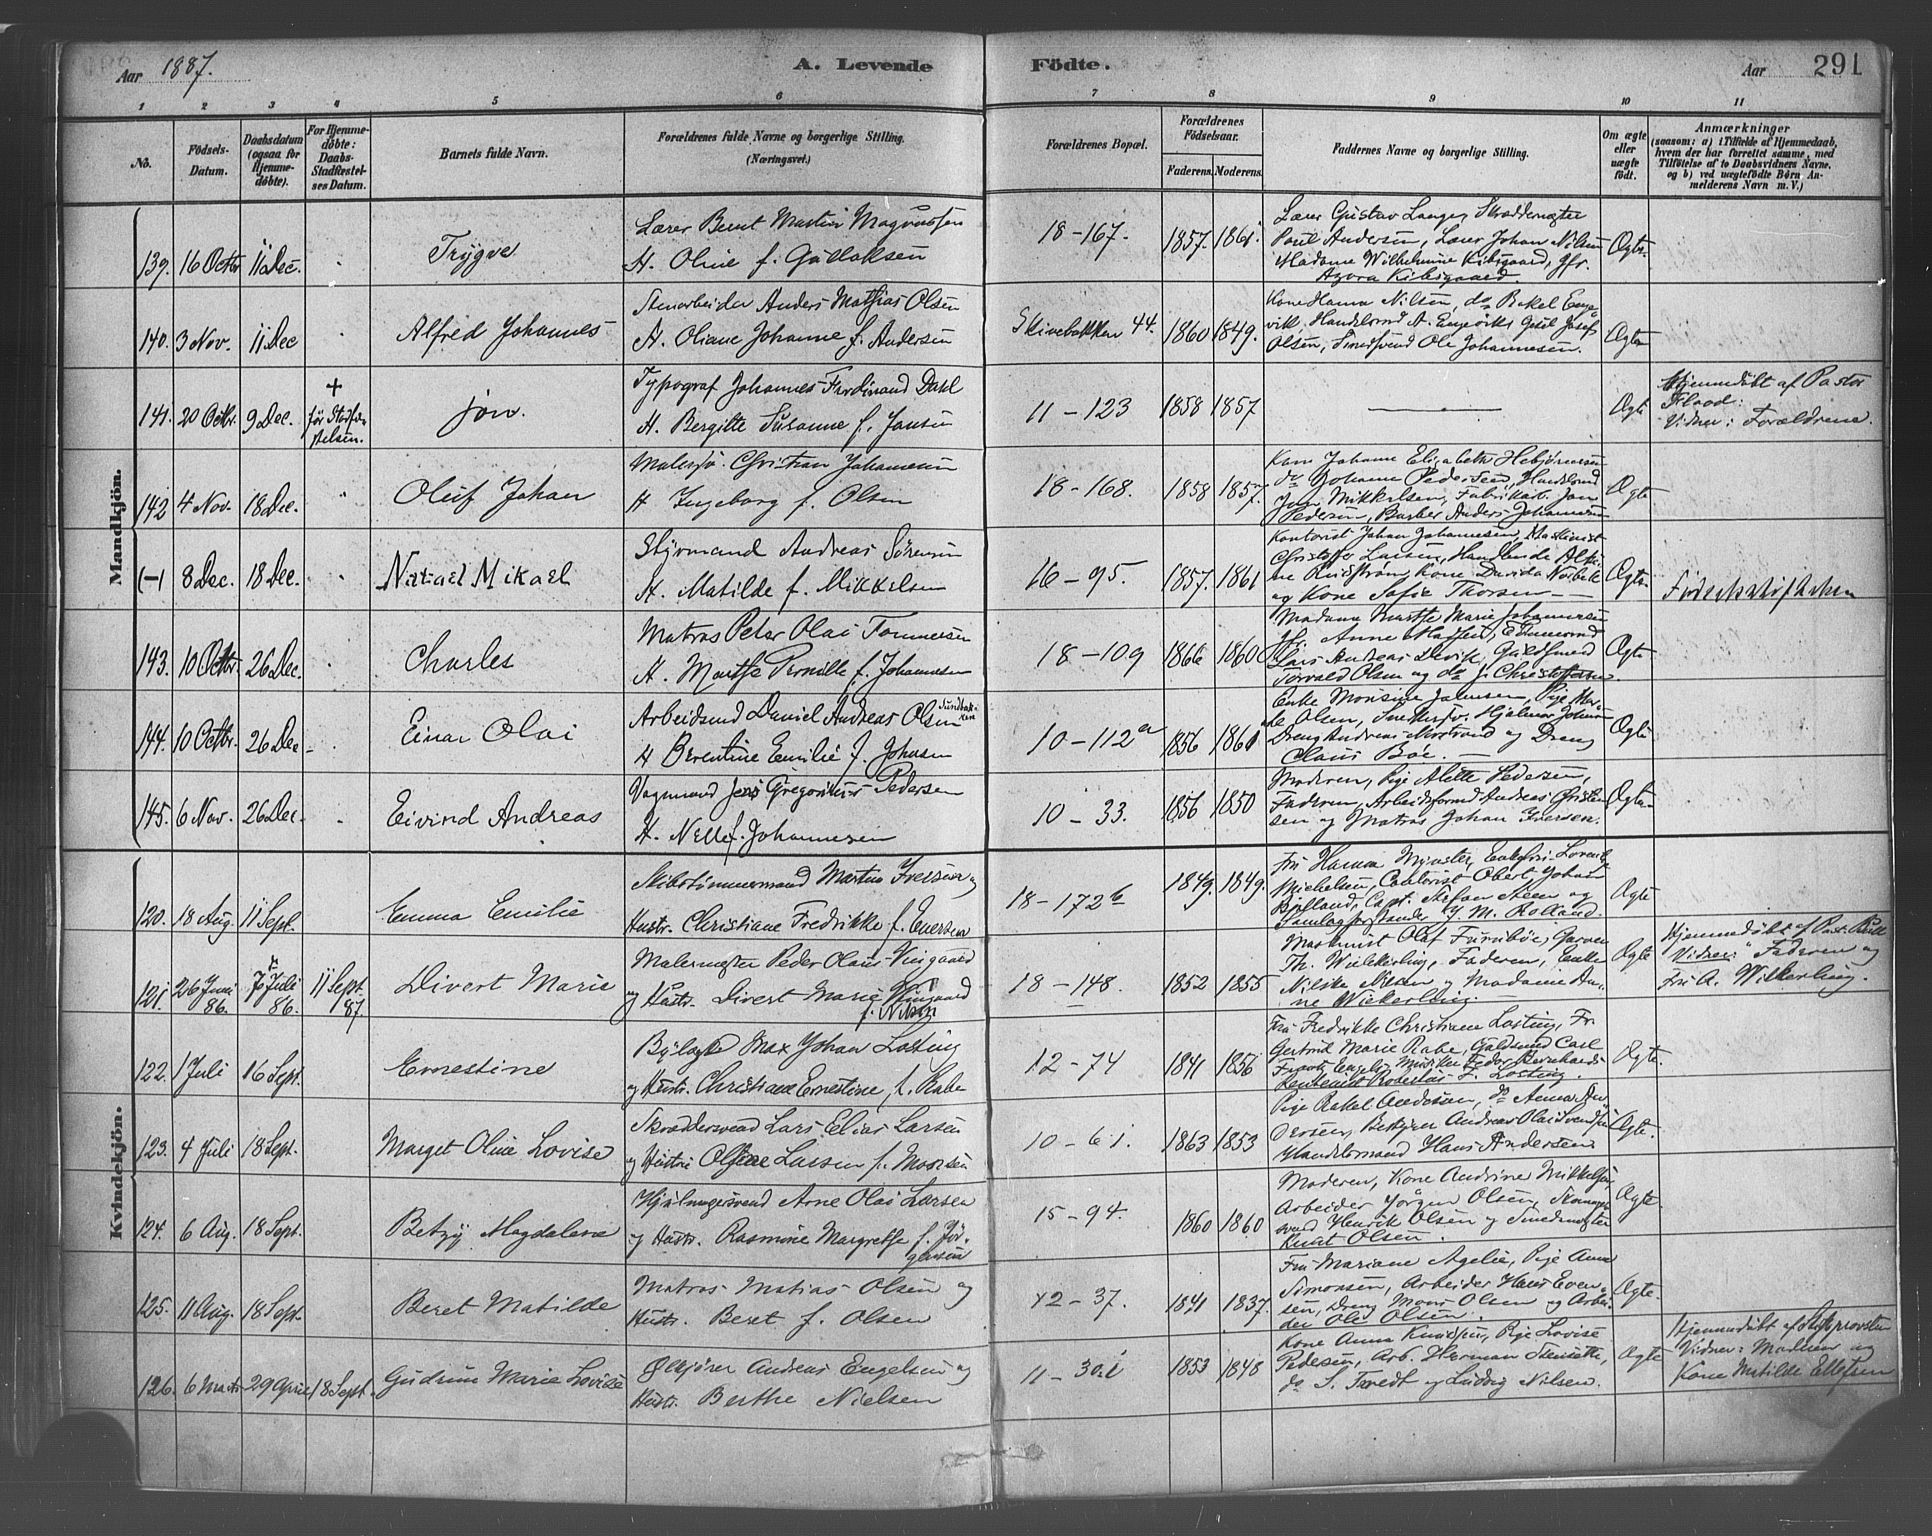 Aar 1887.
A. Levende
Födte.
Aar
291
1 2 3 4 5 6 7 8 9 10 11
No.
Födsels-
Datum.
Daabsdatum
(ogsaa for
Hjemme-
döbte).
For Hjemme-
döbte:
Daabs-
Stadfæstel-
ses Datum.
Barnets fulde Navn.
Forældrenes fulde Navne og borgerlige Stilling.
(Næringsvei.)
Forældrenes Bopæl.
Forældrenes
Födselsaar.
Faderens. Moderens.
Faddernes Navne og borgerlige Stilling.
Om ægte
eller
uægte
födt.
Anmærkninger
(saasom: a) i Tilfælde af Hjemmedaab,
hvem der har forrettet samme, med
Tilföielse af to Daabsvidners Navne,
og b) ved uægtefödte Börn, An-
melderens Navn m. V.)
Mandkjön.
139. 16 Octbr 11 Dec. Trygve
Lærer Bernt Martin
H. Oline f. Gullaksen
18-167. 1857. 1861.
Lærer Gustav Lange, Skræddermester
Paul Andersen, Lærer Johan Nilsen
Madame Wilhelmine Kibsgaard, Jfr.
Azora Kibsgaard
Ægte
140. 3 Nov. 11 Dec Alfred Johannes
Stenarbeider Anders Mathias Olsen
H. Oliane Johanne f. Andersen
Skivebakken 44. 1860 1849.
Kone Hanna Nilsen, do Rakel Enge-
vik, Handelsmd A. Engevik, Gesel Josef
Olsen, Smedsvend Ole Johannesen.
Ægte
141. 20 Octbr. 9 Dec. +
før Stadfæ-
stelsen.
Jon.
Typograf Johannes Ferdinand Dahl
H. Bergitte Susanne f. Jansen
11-123 1858 1857
Ægte
Hjemmedøbt af Pastor
Flood:
Vidner: Forældrene.
142 4 Nov. 18 Dec. Oluf Johan
Malersv. Christian Johannesen
H Ingeborg f. Olsen
18-168. 1858 1857.
Kone Johanne Elisabeth
do Johanne Pedersen, Handelsmd
Jon Mikkelsen, Fabrikarb. Jan
Pedersen, Barber Anders Johannesen
Ægte
(-) 8 Dec. 18 Dec. Natael Mikael
Styrmand Andreas Sørensen
H. Matilde f. Mikkelsen
16-95. 1857. 1861
Kontorist Johan Johannesen, Maskinist
Christoffer Larsen, Handlende
Kone Davida
og Kone Sofie Thorsen
Ægte
Fødselsstiftelsen
143. 10 Octbr. 26 Dec. Charles
Matros Peter Olai Tommesen
H. Marthe Pernille f. Johannesen
18-109 1866 1860
Madame Marthe Marie Johannessen
Anne Madsen,
Lars Andreas Devik, Guldsmed
Torvald Olsen og do J. Christoffersen.
Ægte
144. 10 Octbr. 26 Dec. Einar Olai
Arbeidsmd Daniel Andreas Olsen
H Berentine Emilie f. Johnsen
10-112a 1856 1861
Enke Monsine Jansen, Pige
Olsen, Snedkersv. Hjalmar Johnsen
Dreng Andreas og Dreng
Claus Bøe.
Ægte
145. 6 Nov. 26 Dec. Eivind Andreas
Vognmand Jens Gregorius Pedersen
H. Nelle f. Johannesen
10-33. 1856 1850
Moderen, Pige Alette Pedersen,
Faderen, Arbeidsformd Andreas Christen-
sen og Matros Johan Iversen.
Ægte
Kvindekjön.
120. 18 Aug. 11 Sept. Emma Emilie
Skibstømmermand Martin Iversen og
Hustr. Christiane Fredrikke f. Evensen
18-172b 1849. 1849.
Fru Hanna Mynster, Enkefru Lovise
Michelsen, Contorist Obert, Johan
Bjelland, Capt. Stefan Steen og
J. M. Rolland.
Ægte
121. 26 Juni 86. 7 Juli 86. 11 Sept. 87. Divert Marie
Malermester Peder Olaus Vingaard
og Hustr. Divert Marie Vingaard
f. Nilsen
18-148. 1852 1855
Maskinist Olaf Furubøe,
Th. Wielkerling, Faderen, Enke
Nilske Nilsen og Madame An-
ne Wielkerling.
Ægte
Hjemmedøbt af Past.
Vidner: Faderen og
Fru A. Wilkerling.
122. 1 Juli 16 Sept. Ernestine
Bylæge Max Johan Lasting
og Hustr. Christiane Ernestine f. Rabe
12-74 1841 1856
Fru Fredrikke Christiane Losting, Fr.
Gertrud Marie Rabe, Guldsmed Carl
Ægte.
123. 4 Juli 18 Sept. Marget Oline Lovise
Skræddersvend Lars Elias Larsen
og Hustru Oline Larsen f. Monsen
10-61. 1863 1853
Pige Rakel Andersen, do Anna An-
dersen, Bestyrer Andreas Olai Svendsen
Handelsmand Hans Andersen
Ægte.
124. 6 Aug. 18 Sept. Betzy Magdalena
Hjulmagersvend Arne Olai Larsen
og Hustr. Rasmine Margrethe f. Jør-
gensen
15-94. 1860 1860
Moderen, Kone Andrine Mikkelsen
Arbeider Jørgen Olsen, Skomager-
svend Henrik Olsen og Smedmester
Knut Olsen.
Ægte.
125. 11 Aug. 18 Sept. Beret Matilde
Matros Matias Olsen og
Hustr. Beret f. Olsen
42-37. 1841 1837.
Fru Mariane Agelie, Pige Anna
Simonsen, Arbeider Hans Even-
sen, Dreng Mons Olsen og Arbei-
der Ole Olsen.
Ægte.
126. 6 Marts 29 April 18 Sept. Gudrun Marie Lovise
Ølkjører Andreas Engelsen og
Hustr. Berthe Nielsen
11-30 1853 1848
Kone Anna Knudsen, Pige Lovise
Pedersen, Arb. Herman Stensette,
do S. Tvedt og Ludvig Nielsen.
Ægte
Hjemmedøbt af Stiftsprovsten
Vidner: Madsen og
Kone Matilde Ellefsen